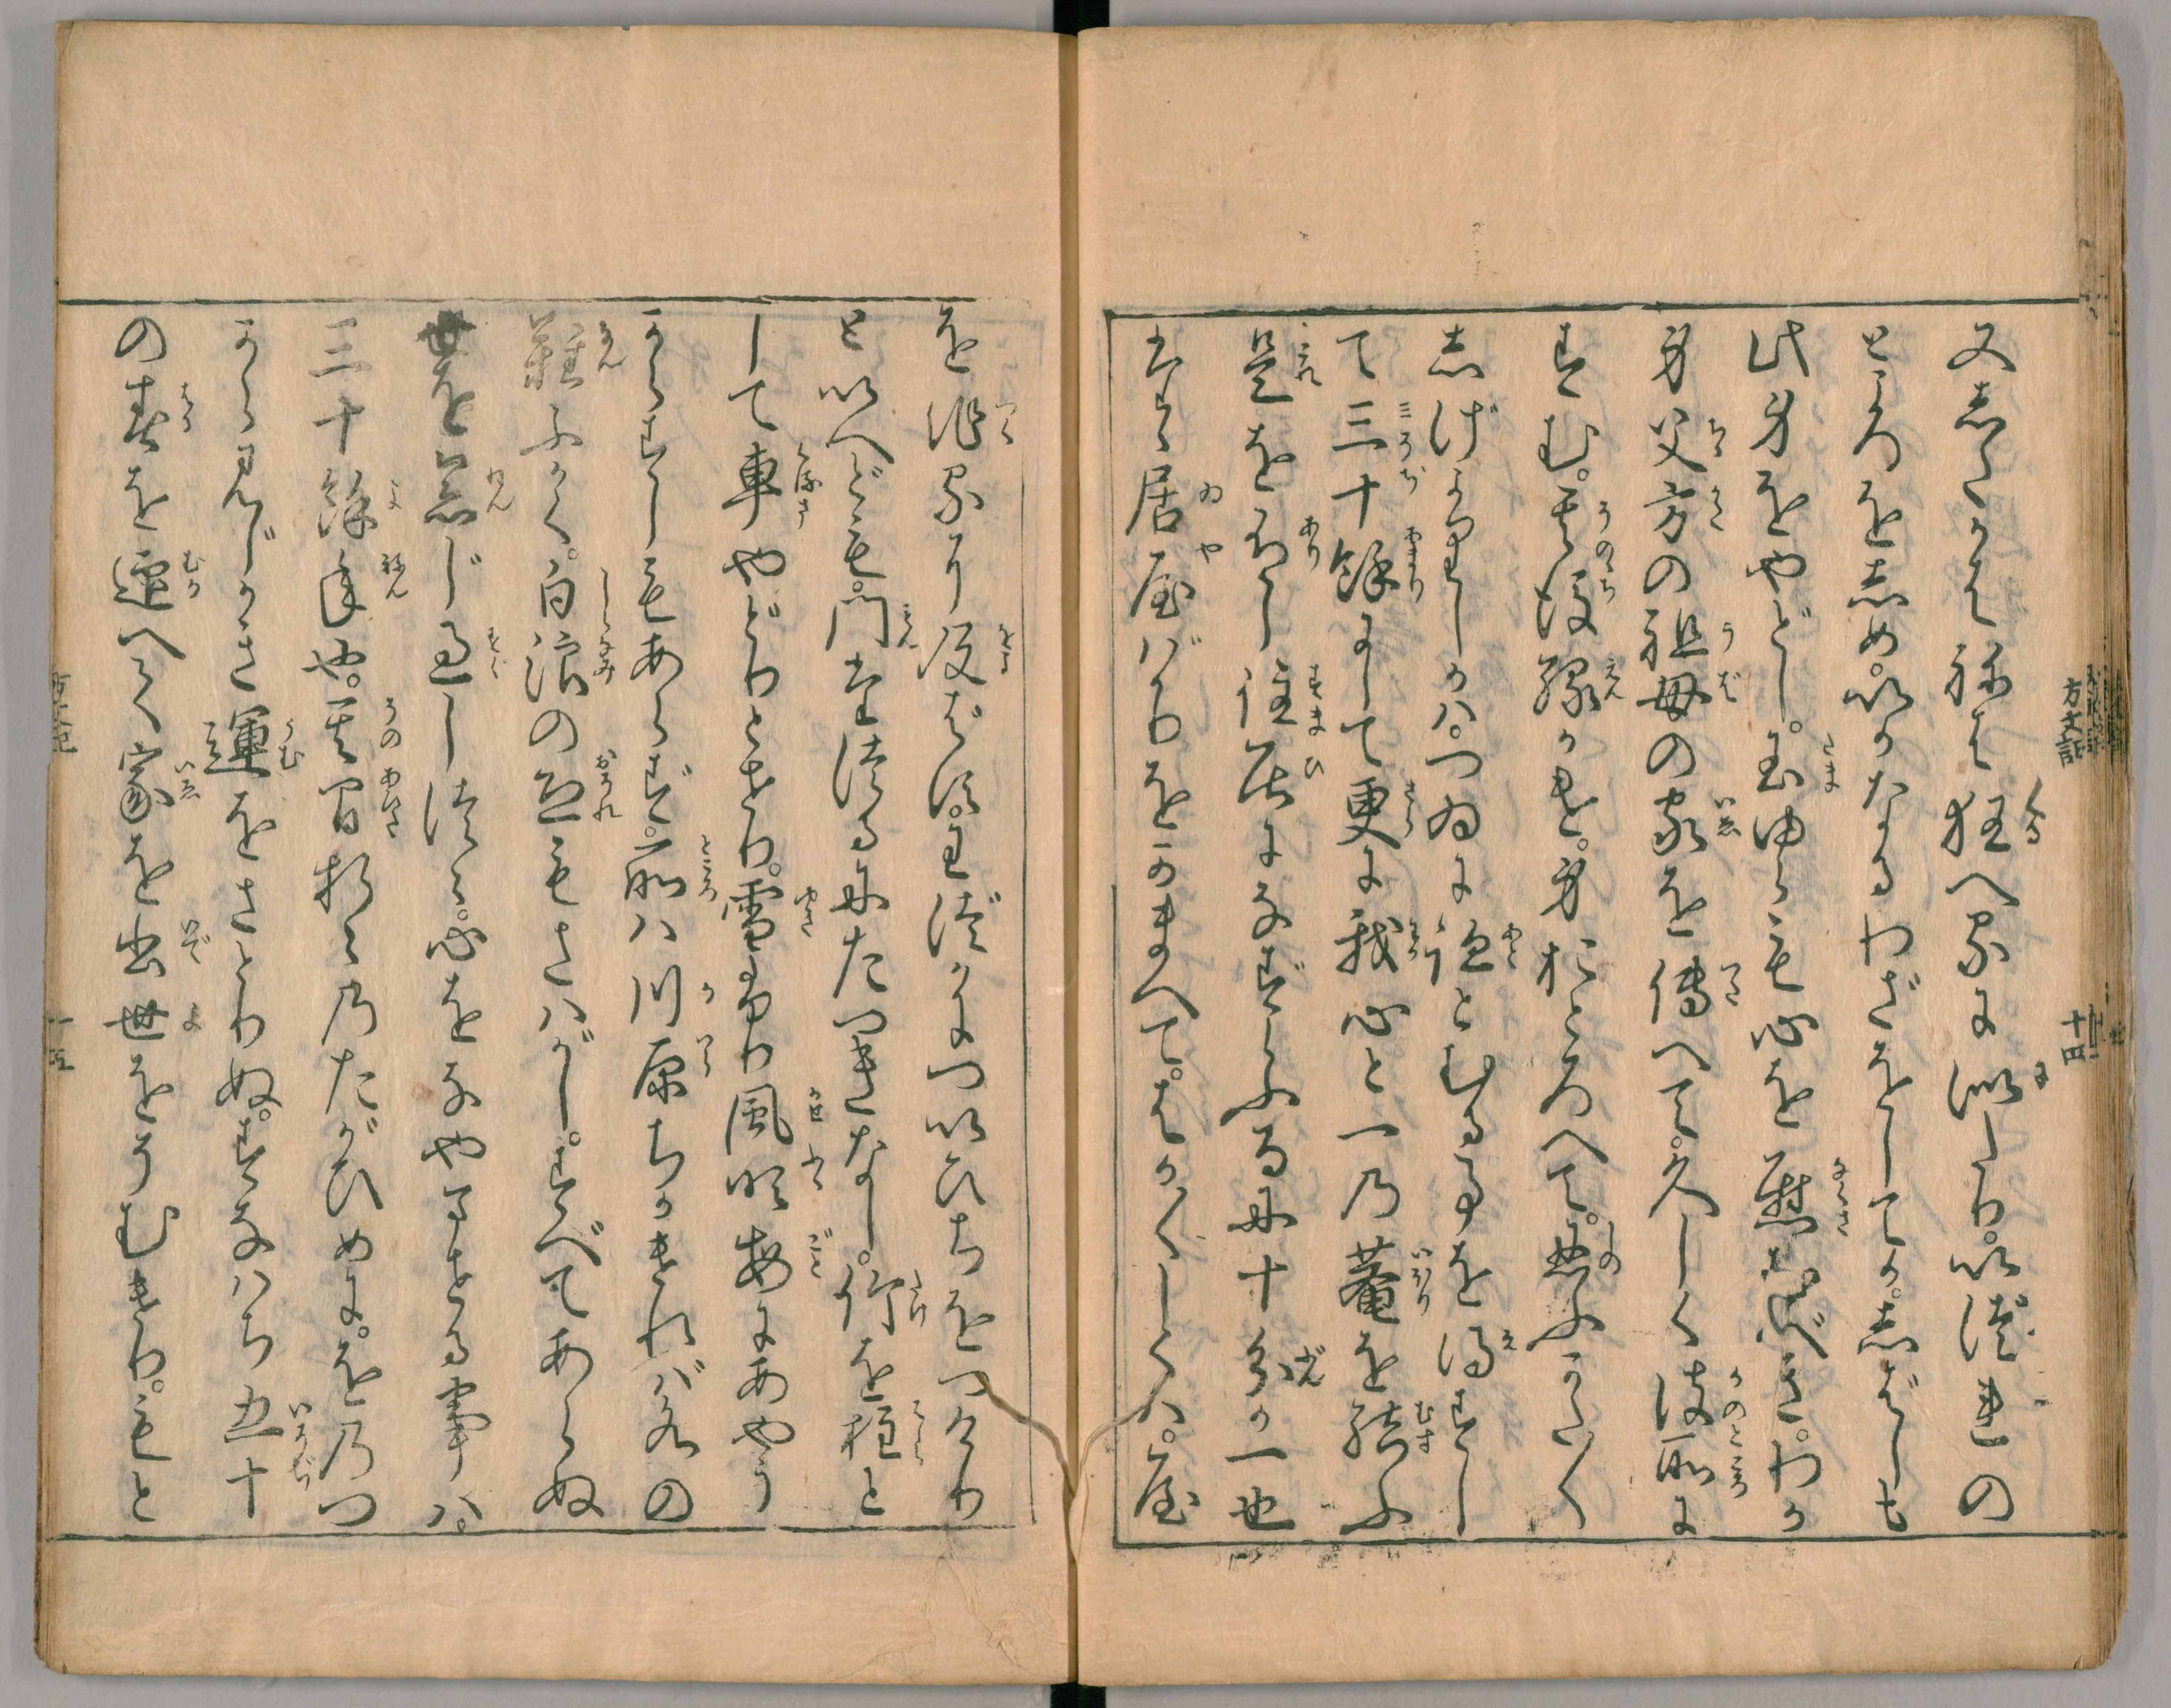 又したかはねは狂へるに似たり。いづれの
ところをしめ。いかなるわざをしてか。しばしも
此身をやどし。玉ゆらも心を慰むべき。わか
身父方の祖母の家を傳へて。久しく彼所に
すむ。其後縁かけ。身おとろへて。忍ふかた〱
しげかりしかハ。つゐに跡とむる事を得すし
て三十餘にして更に我心と一乃菴を結ふ
是をありし住居になずらふるに十分か一也
たゝ居屋ばかりをかまへて。はか〲しくハ。屋
を作るに及ばす。わづかについひちをつけり
と いへども。門たつるにたつきなし。竹を柱と
して車やどりとせり。雪ふり風吹毎にあやう
からすしもあらず。所ハ川原ちかければ水の
難ふかく。白浪の恐もさハがし。すべてあらぬ
世を念じ過しつゝ。心をなやませる事ハ。
三十餘年也。其間折〻乃たがひめに。をのつ
からみじかき運をさとりぬ。すなハち五十
の春を迎へて家を出世をそむけり。もと
方丈記
十四